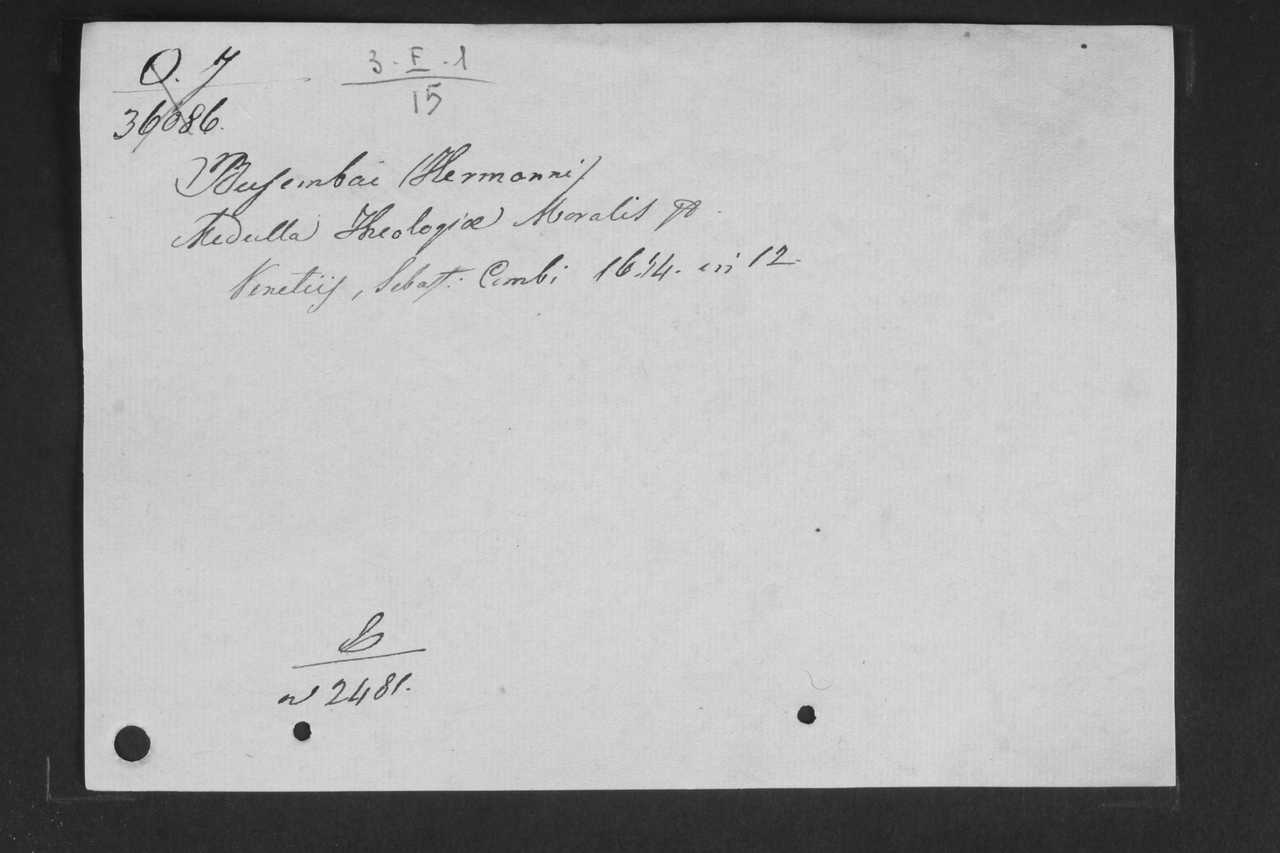 O. 7
36086.
3-E-1
15
Busembai (Hermanni)
Medulla Theologiæ Moralis
Venetiis, Sebast: Combi 1654. in 12.
n 2481.